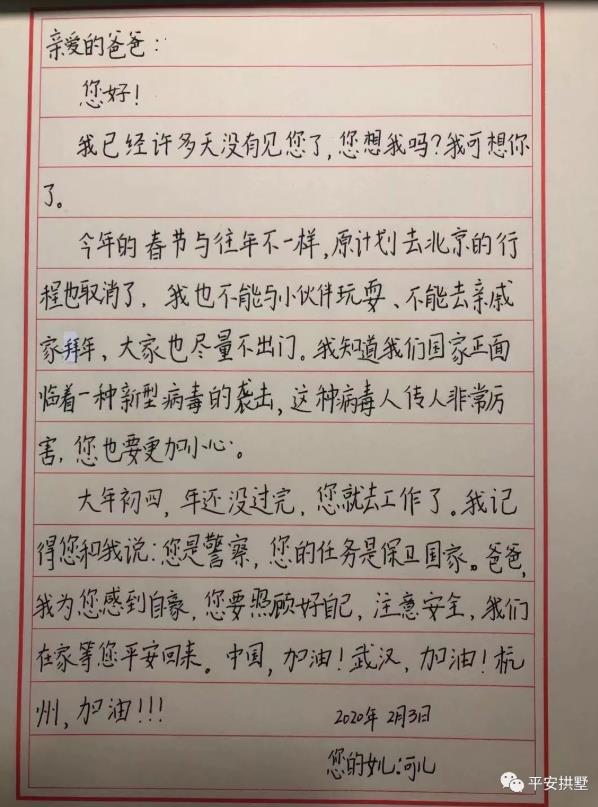 亲爱的爸爸：
您好！
我已经许多天没有见您了，您想我吗？我可想你
了。
今年的春节与往年不一样，原计划去北京的行
程也取消了．我也不能与小伙伴玩耍、不能去亲戚
家拜年，大家也尽量不出门。我知道我们国家正面
临着一种新型病毒的袭击，这种病毒人传人非常厉
害，您也要更加小心。
大年初四，年还没过完，您就去工作了。我记
得您和我说：您是警察，您的任务是保卫国家。爸爸，
我为您感到自豪，您要照顾好自己，注意安全，我们
在家等您平安回来。中国，加油！武汉，加油！杭
州，加油！！！
2020年2月3日
您的女儿：可儿
平安拱墅